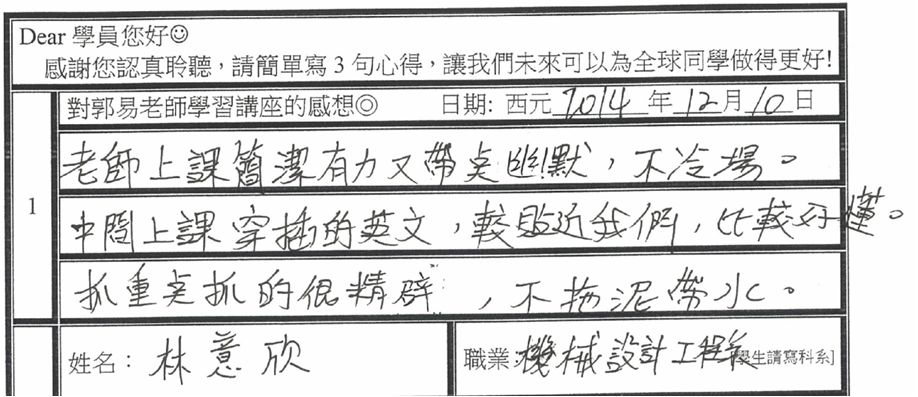 Dear 學員您好☺
感謝您認真聆聽，請簡單寫 3 句心得，讓我們未來可以為全球同學做得更好!
1
對郭易老師學習講座的感想◎ 日期: 西元 2014 年 12 月 10 日
老師上課簡潔有力又帶点幽默，不冷場。
中間上課穿插的英文，較貼近我們，比較好懂。
抓重点抓的很精辟，不拖泥帶水。
姓名： 林意欣 職業： 機械設計工程系 [學生請寫科系]